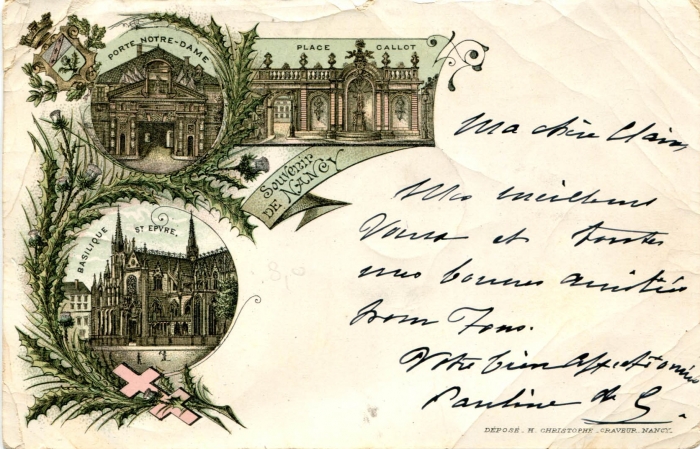 PORTE NOTRE-DAME
PLACE CALLOT
Souvenir
DE NANCY
BASILIQUE ST EPVRE.
Ma chère Claire
Mes meilleurs
Vœux et toutes
mes bonnes amitiés
pour Tous.
Votre bien affectionnée
Pauline de G.
DÉPOSÉ _ M. CHRISTOPHE _ GRAVEUR _ NANCY _